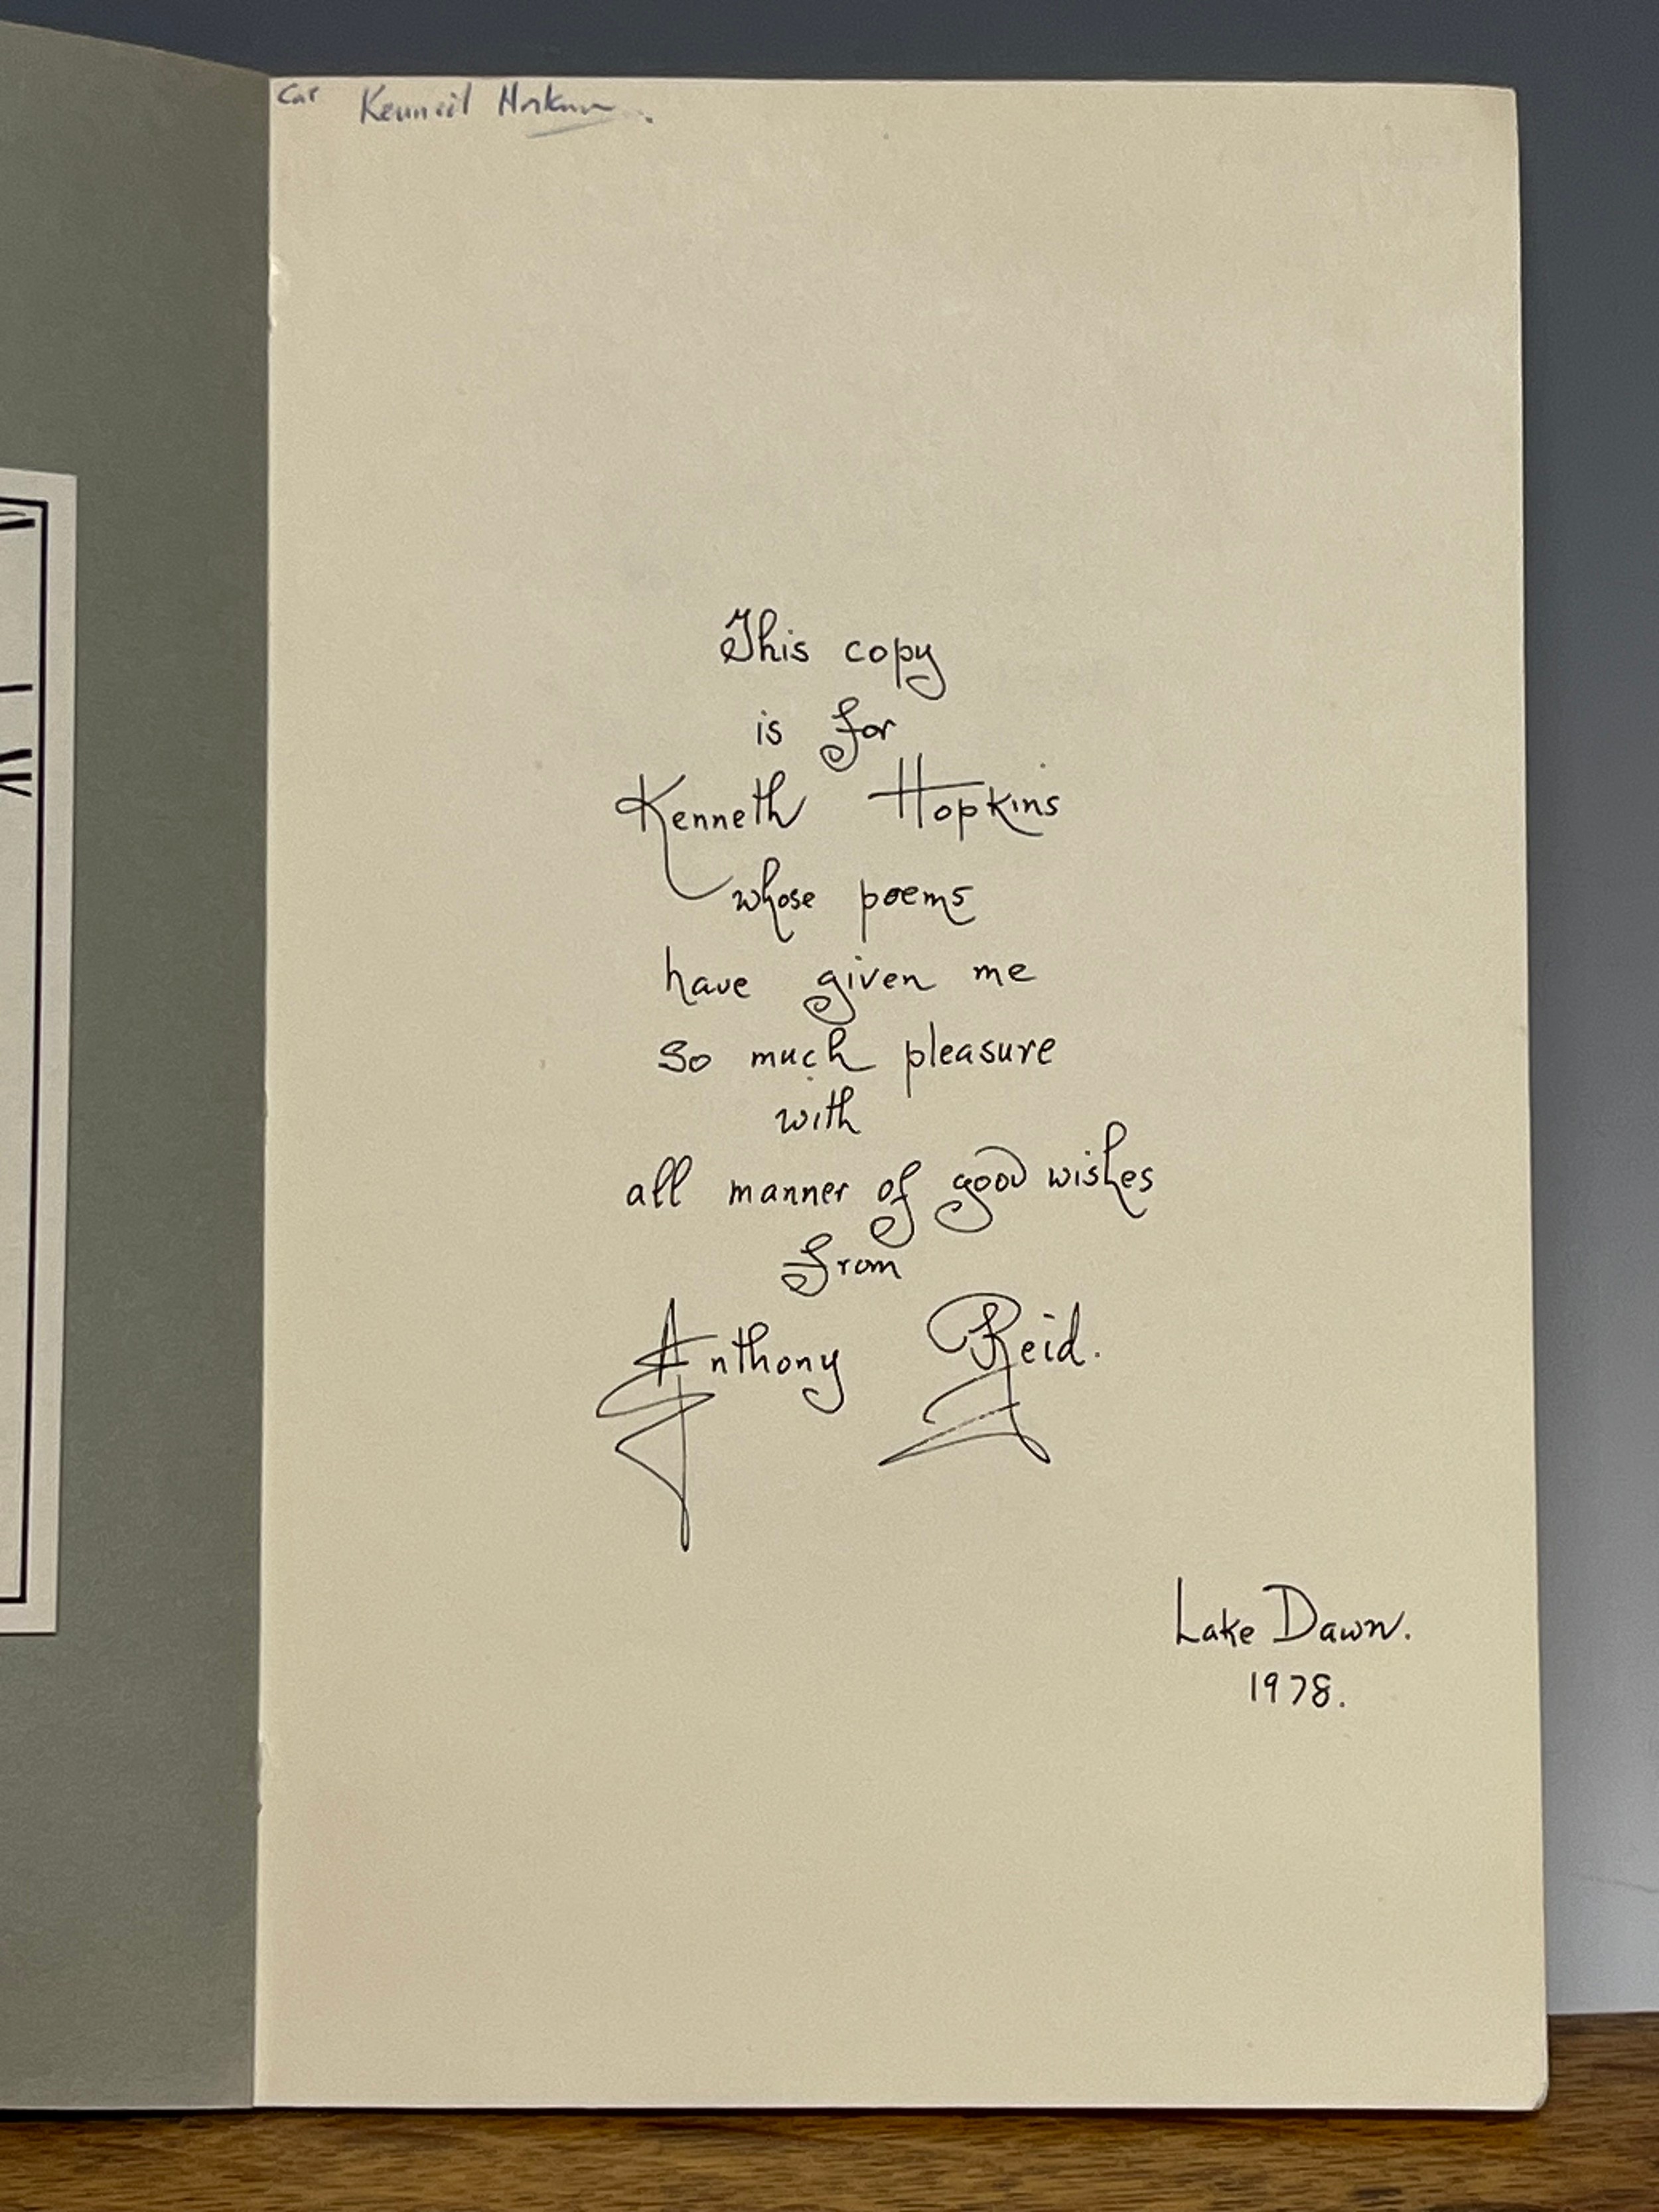 Kenneth Hopkins.
This copy
is for
Kenneth Hopkins
whose poems
have given me
so much pleasure
with
all manner of good wishes
from
Anthony Reid.
Lake Dawn.
1978.